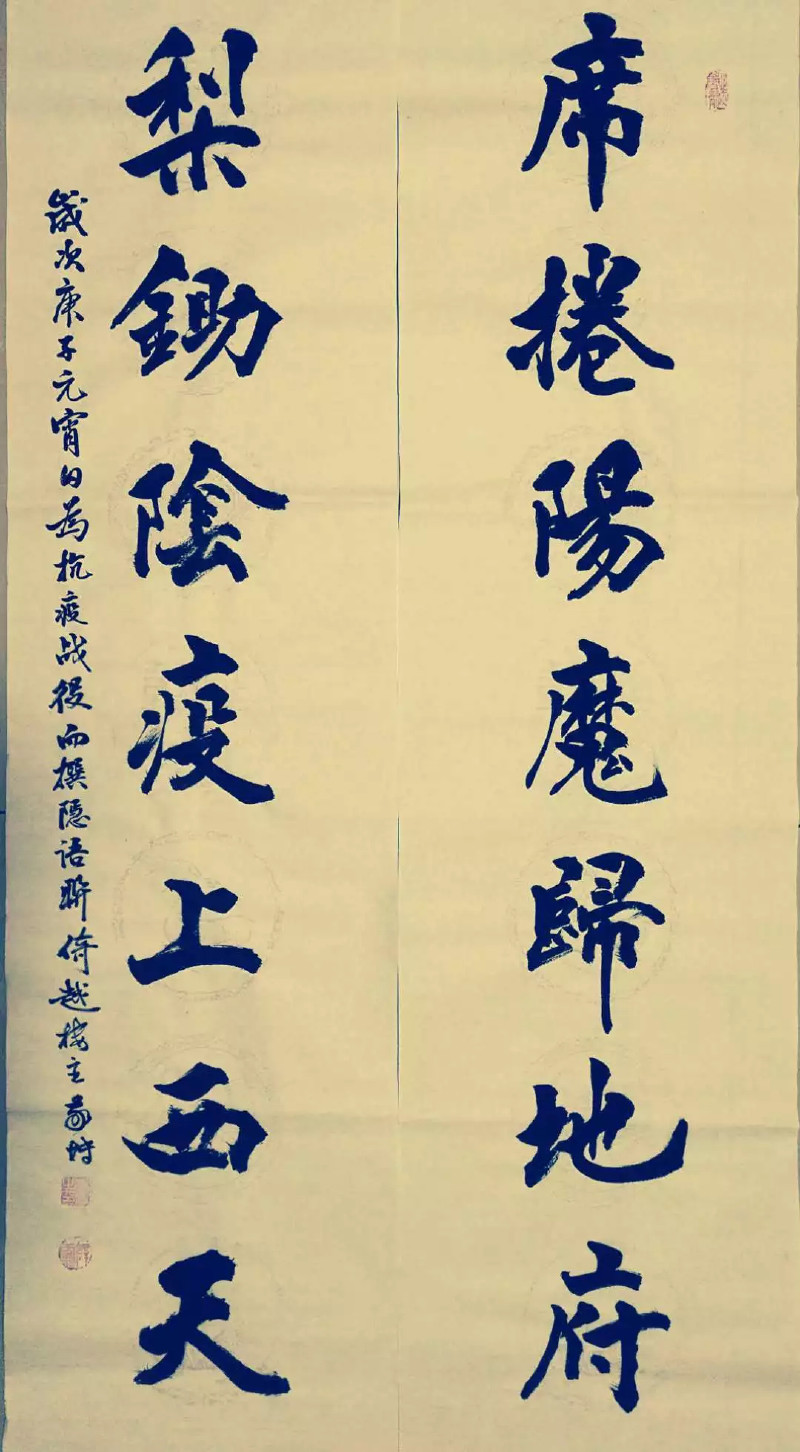 席捲陽魔歸地府
梨鋤陰疫上西天
歲次庚子元宵日為抗疫战役而撰隐语联倚越楼主